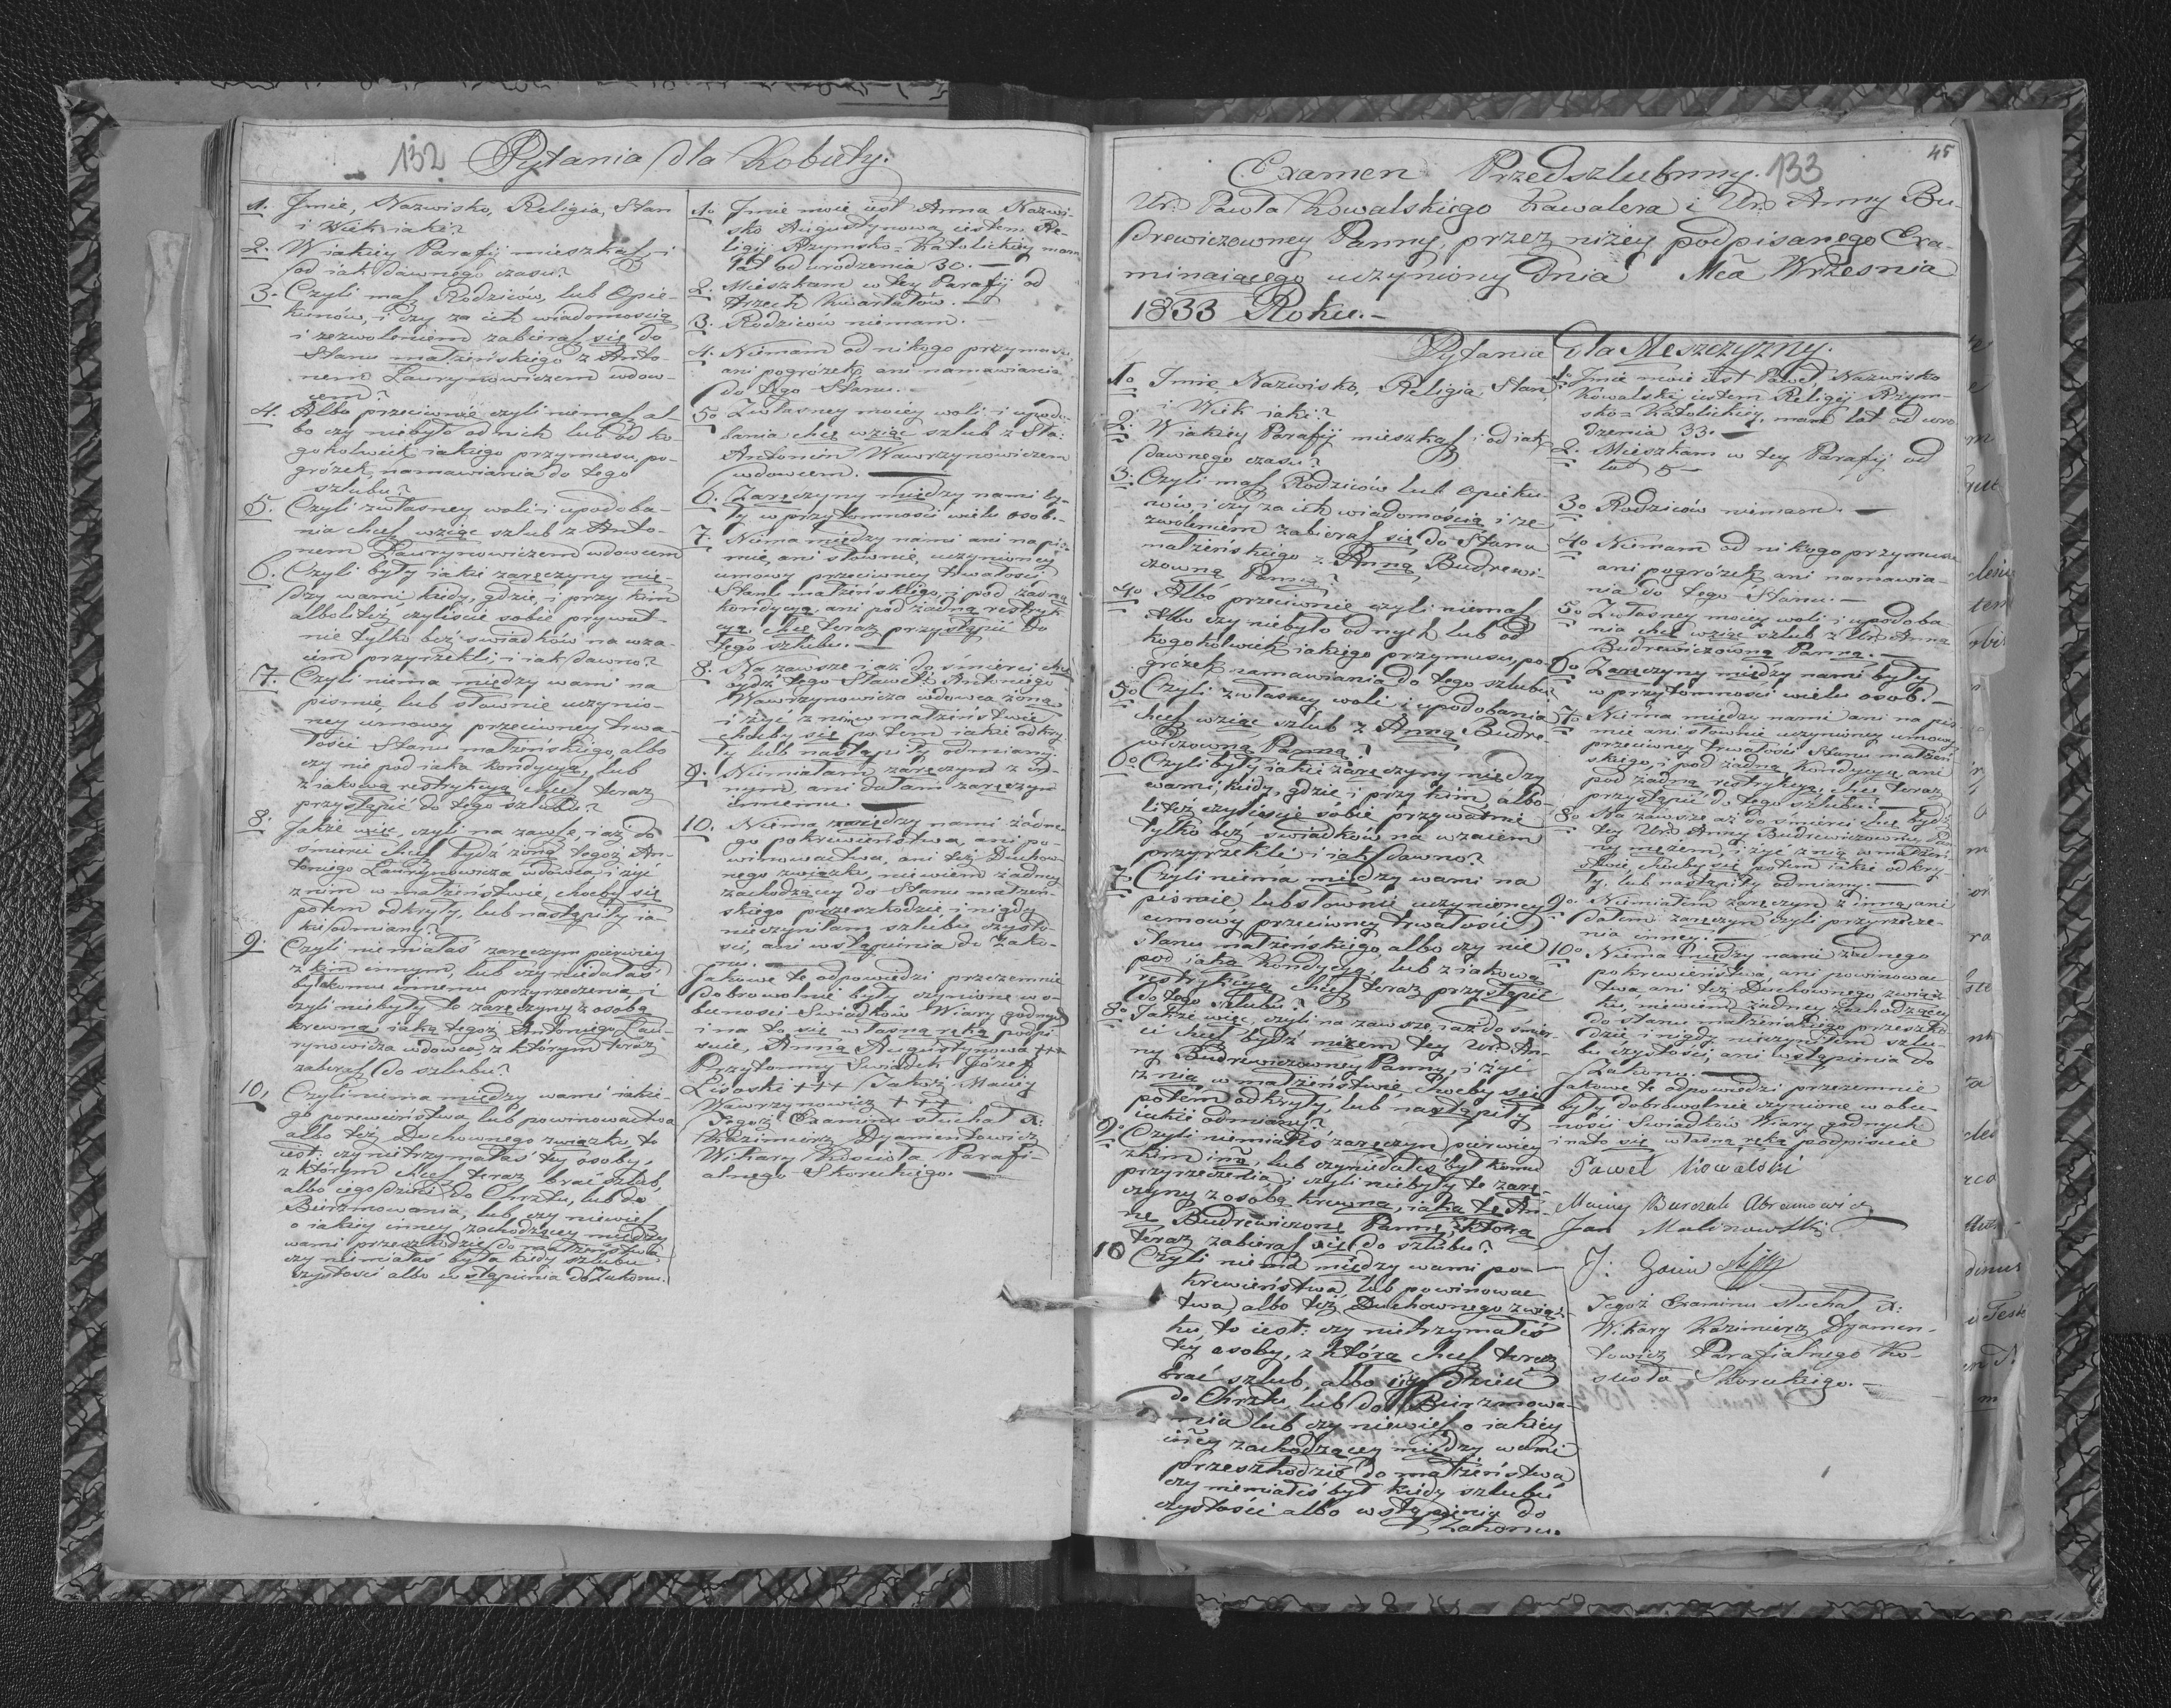 132 Pytania dla Kobiety.
1. Jmie, Nazwisko, Religia, Stan
i Wiek iaki?
2. W iakiey Parafij mieszkasz, i
od iak dawnego czasu?
3. Czyli masz Rodziców, lub Opie-
kunów, i czy za ich wiadomością
i zezwoleniem zabierasz się do
Stanu małżeńskiego z Anto-
nem Ławrynowiczem wdow-
cem?
4. Albo przeciwnie czyli niemasz al-
bo czy niebyło od nich lub od ko-
gokolwiek iakiego przymusu, po-
gróżek, namawiania do tego
szlubu?
5. Czyli zwłasney woli i upodoba-
nia chcesz wziąc szlub z Anto-
nem Ławrynowiczem wdowcem
6. Czyli były iakie zaręczyny mię-
dzy wami, kiedy, gdzie i przy kim
albo liteż czyliście sobie prywat-
nie tylko bez swiadków na wza-
iem przyrzekli, i iak dawno?
7. Czyli niema między wami na
pismie, lub słownie uczynio-
ney umowy przeciwney trwa-
łości Stanu małżeńskiego, albo
czy nie pod iaka kondycyą, lub
z iakową restrykcyą chcesz teraz
przystąpić do tego szlubu?
8. Jakże więc, czyli na zawsze, i aż do
smierci chcesz bydź żoną tegoż An-
toniego Ławrynowicza wdowca i żyć
z nim w małżeństwie, chocby się
potem odkryły, lub nastąpiły ia-
kie odmiany?
9. Czyli niemiałaś zaręczyn pierwiey
z kim innym, lub czy niedałaś
była komu innemu przyrzeczenia, i
czyli niebyły to zaręczyny z osobą
krewną, iaką tegoż Antoniego Ław-
rynowicza wdowca, z którym teraz
zabierasz do szlubu?
10, Czyli niema między wami iakie-
go pokrewieństwa, lub powinowactwa
albo też Duchownego związku, to
iest: czy nietrzymałaś tey osoby,
z którym chcesz teraz brać szlub,
albo iego dzieci do Chrztu, lub do
Bierzmowania, lub czy niewiesz
o iakiey inney zachodzącey między
wami przeszkodzie do małżeństwa
czy niemiałaś była kiedy szlubu
czystości albo wstąpienia do Zakonu.
1o Jmie moie iest Anna Nazwi-
sko Augustynowa, iestem Re-
ligij Rzymsko-Katolickiey mam
lat od urodzenia 30. —
2. Mieszkam w tey Parafij od
trzech kwartałów. —
3. Rodziców niemam. —
4. Niemam od nikogo przymusu
ani pogróżek, ani namawiania
do tego Stanu. —
5o Zwłasney moiey woli i upodo-
bania chcę wziąc szlub z Sta:
Antonim Wawrzynowiczem
wdowcem. —
6. Zaręczyny między nami by-
ły w przytomności wielu osób.
7. Niema między nami ani na pis-
mie, ani słownie, uczynioney
umowy przeciwney trwałości
Stanu małżeńskiego, i pod żadną
kondycyą, ani pod żadną restryk-
cyą chcę teraz przystąpić do
tego szlubu. —
8. Na zawsze i aż do śmierci chcę
bydź tego Sławet: Antoniego
Wawrzynowicza wdowca żoną
i żyć z nim w małżeństwie
choćby się potem iakie odkry-
ły lub nastąpiły odmiany.
9. Niemiałam zaręczyn z in-
nym, ani dałam zaręczyn
innemu. —
10. Niema między nami żadne-
go pokrewieństwa, ani po-
winowactwa, ani też Duchow-
nego związku, niewiem żadney
zachodzącey do Stanu małżeń-
skiego przeszkodzie i nigdy
nieczyniłam szlubu czysto-
ści, ani wstąpienia do Zako-
nu. —
Jakowe to odpowiedzi przezemnie
dobrowolnie były czynione w o-
becnosci Swiadków Wiary godnych
i na to się własną ręką podpi-
suie, Anna Augustynowa +++
Przytomny Swiadek Józef
Lisoski +++ Jakoż Maciey
Wawrzynowicz +++
Tegoż Examinu słuchał X:
Kazimierz Dyamentowicz
Wikary Kościoła Parafi-
alnego Skoruckiego. —
45
Examen Przedszlubnny. 133
Ur. Pawła Kowalskiego Kawalera i Ur. Anny Bu-
drewiczowney Panny, przez niżey podpisanego Exa-
minaiącego uczyniony Dnia Mca Wrzesnia
1833 Roku. –
Pytania dla Meszczyzny.
1o Jmie Nazwisko, Religia, Stan,
i Wiek iaki?
2. W iakiey Parafij mieszkasz i od iak
dawnego czasu?
3. Czyli masz Rodziców lub Opieku-
nów, i czy za ich wiadomością i ze-
zwoleniem zabierasz się do Stanu
małżeńskiego z Anną Budrewi-
czowną Panną?
4o Albo przeciwnie czyli niemasz
Albo czy niebyło od nych lub od
kogokolwiek iakiego przymusu, po-
gróżek namawiania do tego szlubu?
5o Czyli zwłasney woli i upodobania
chcesz wziąc szlub z Anną Budre-
wiczowną Panną?
6o Czyli były iakie zaręczyny między
wami, kiedy, gdzie i przy kim, albo-
liteż czyliscie sobie prywatnie
tylko bez swiadków na wzaiem
przyrzekli i iak dawno?
7. Czyli niema między wami na
pismie lub słownie uczynioney
umowy przeciwney trwałości
stanu małżeńskiego, albo czy nie
pod iaką Kondycyą, lub z iakową
restrykcyą chcesz teraz przystąpić
do tego szlubu?
8o Jakże więc, czyli na zawsze, i aż do śmier-
ci chcesz bydź mężem tey Ur. An-
ny Budrewiczowney Panny, i żyć
z nią w małżeństwie, choćby się
potem odkryły, lub nastąpiły
iakie odmiany?
9o Czyli niemiałeś zaręczyn pierwiey
z kim inną, lub czy niedałeś był komu
przyrzeczenia, i czyli niebyły to zarę-
czyny z osobą krewną, iaką tę An-
nę Budrewiczonę Pannę, z którą
teraz zabierasz się do szlubu?
10 Czyli niema między wami po-
krewieństwa, lub powinowac-
twa, albo też Duchownego zwią-
zku, to iest: czy nietrzymałeś
tey osoby, z którą chcesz teraz
brać szlub, albo iey dzieci
do Chrztu, lub do Bierzmowa-
nia lub czy niewiesz o iakiey
iñey zachodzącey między wami
przeszkodzie do małżeństwa
czy niemiałeś był kiedy szlubu
czystości albo wstąpienia do
Zakonu.
1o Jmie moie iest Paweł, Nazwisko
Kowalski iestem Religij Rzym-
sko=Katolickiey, mam lat od uro-
dzenia 33. —
2. Mieszkam w tey Parafij od
lat 5 —
3o Rodziców niemam. —
4o Niemam od nikogo przymusu
ani pogróżek, ani namawia-
nia do tego Stanu. —
5o Zwłasney moiey woli i upodoba-
nia chcę wziąc szlub z Ur. Anną
Budrewiczowną Panną. —
6o Zaręczyny między nami były
w przytomności wielu osob. —
7o Niema między nami ani na pis-
mie ani słownie uczynioney umowy
przeciwney trwałości Stanu małżeń-
skiego, i pod żadną Kondycyą, ani
pod żadną restrykcyą, chcę teraz
przystąpić do tego szlubu. —
8o Na zawsze aż do śmierci chcę bydź
tey Ur. Anny Budrewiczowny Pan-
ny mężem, i żyć z nią w małżeń-
stwie, choćby się potem iakie odkry-
ły, lub nastąpiły odmiany. —
9o Niemiałem zaręczyn z inną, ani
dałem zaręczyn czyli przyrzecze-
nia inney. —
10o Niema między nami żadnego
pokrewieństwa, ani powinowac
twa ani też Duchownego związ-
ku, niewiem żadney zachodzącey
do stanu małżeńskiego przeszko-
dzie i nigdy nieczyniłem szlu-
bu czystości, ani wstąpienia do
Zakonu. —
Jakowe to odpowiedzi przezemnie
były dobrowolnie czynione w obec-
ności Swiadków Wiary godnych
i nato się własną ręką podpisuie
Paweł Kowalski
Maciey Burczak Abramowicz
Jan Malinowski
Tegoż Examinu słuchał X:
Wikary Kazimierz Dyamen-
towicz Parafialnego Ko-
scioła Skoruckiego. —